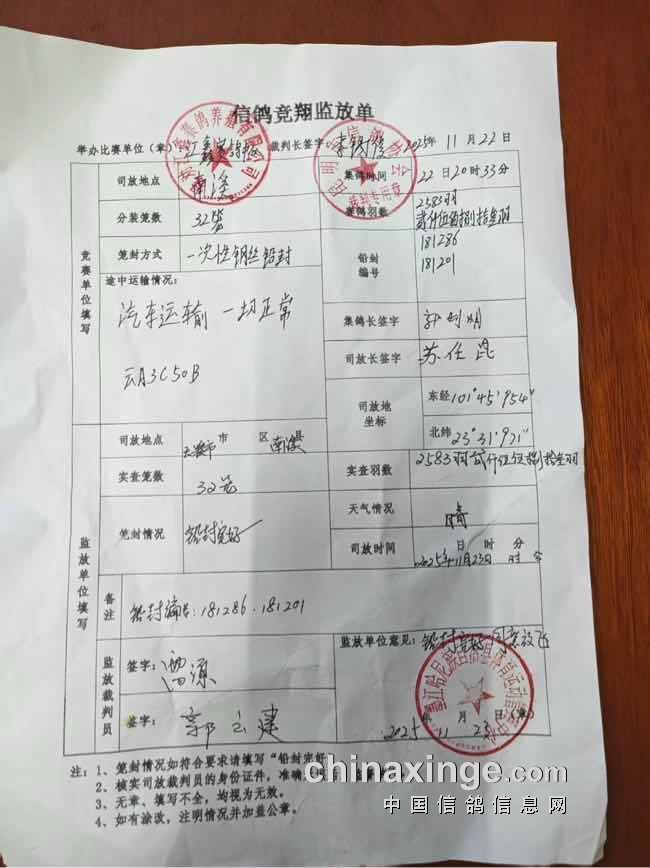 信鸽竞翔监放单
举办比赛单位(章) 裁判长签字: 2025年 11月22日
竞赛单位填写
司放地点 南溪 集鸽时间 22日20时33分
分装笼数 32笼 集鸽羽数 2583羽
笼封方式 一次性钢丝铅封 铅封编号 181286
181201
途中运输情况:
汽车运输 一切正常
云A3C50B
集鸽长签字
司放长签字 苏仕昆
司放地坐标 东经101°45′954″
北纬23°31′971″
监放单位填写
司放地点 市 区 县
实查笼数 32笼 实查羽数 2583羽
笼封情况 铅封完好 天气情况 晴
司放时间 日 时 分
2025年11月23日
备注 铅封编号:181286.181201
监放裁判员
签字: 源
签字: 郭立建
监放单位意见: 铅封完好 同意放飞
2025年 11月 23日(章)
注:1、笼封情况如符合要求请填写“铅封完好
2、核实司放裁判员的身份证件,准确
3、无章、填写不全,均视为无效。
4、如有涂改,注明情况并加盖公章。
chinaxinge.com
中国信鸽信息网